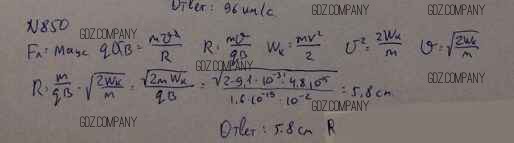 Ответ: 96 см/с.
N850
Fл = maцс qυB = mυ²/R R = mυ/qB Wк = mυ²/2 υ² = 2Wк/m υ = √(2Wк/m)
R = m/qB · √(2Wк/m) = √(2mWк)/qB = √(2·9,1·10⁻³¹·4,8·10⁻¹⁵)/(1.6·10⁻¹⁹·10⁻²) = 5,8 cm
Ответ: 5.8 cm R
GDZ.COMPANY
GDZ.COMPANY
GDZ.COMPANY
GDZ.COMPANY
GDZ.COMPANY
GDZ.COMPANY
GDZ.COMPANY
GDZ.COMPANY